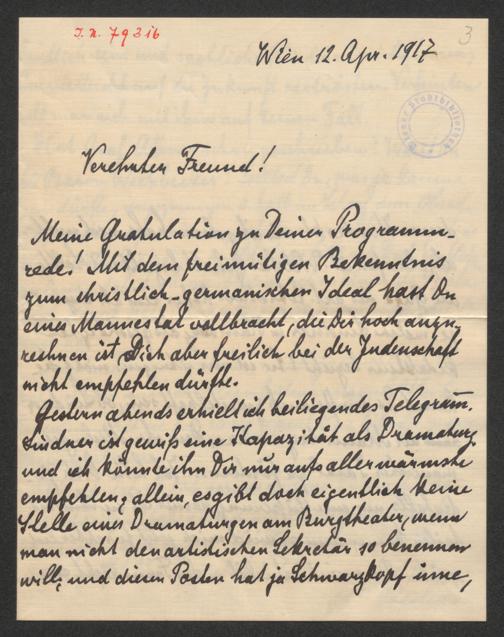 I. N. 79316
3
Wien 12. Apr. 1917
Verehrter Freund!
Meine Gratulation zu Deiner Programm-
rede! Mit dem freimütigen Bekenntnis
zum christlich-germanischen Ideal hast Du
eine Mannestat vollbracht, die Dir hoch anzu-
rechnen ist, Dich aber freilich bei der Judenschaft
nicht empfehlen dürfte.
Gestern abends erhielt ich beiliegendes Telegram̅.
Lindner ist gewiß eine Kapazität als Dramaturg
und ich könnte ihn Dir nur aufs allerwärmste
empfehlen; allein, es gibt doch eigentlich keine
Stelle eines Dramaturgen am Burgtheater, wenn
man nicht den artistischen Sekretär so benennen
will; und diesen Posten hat ja Schwarzkopf inne,